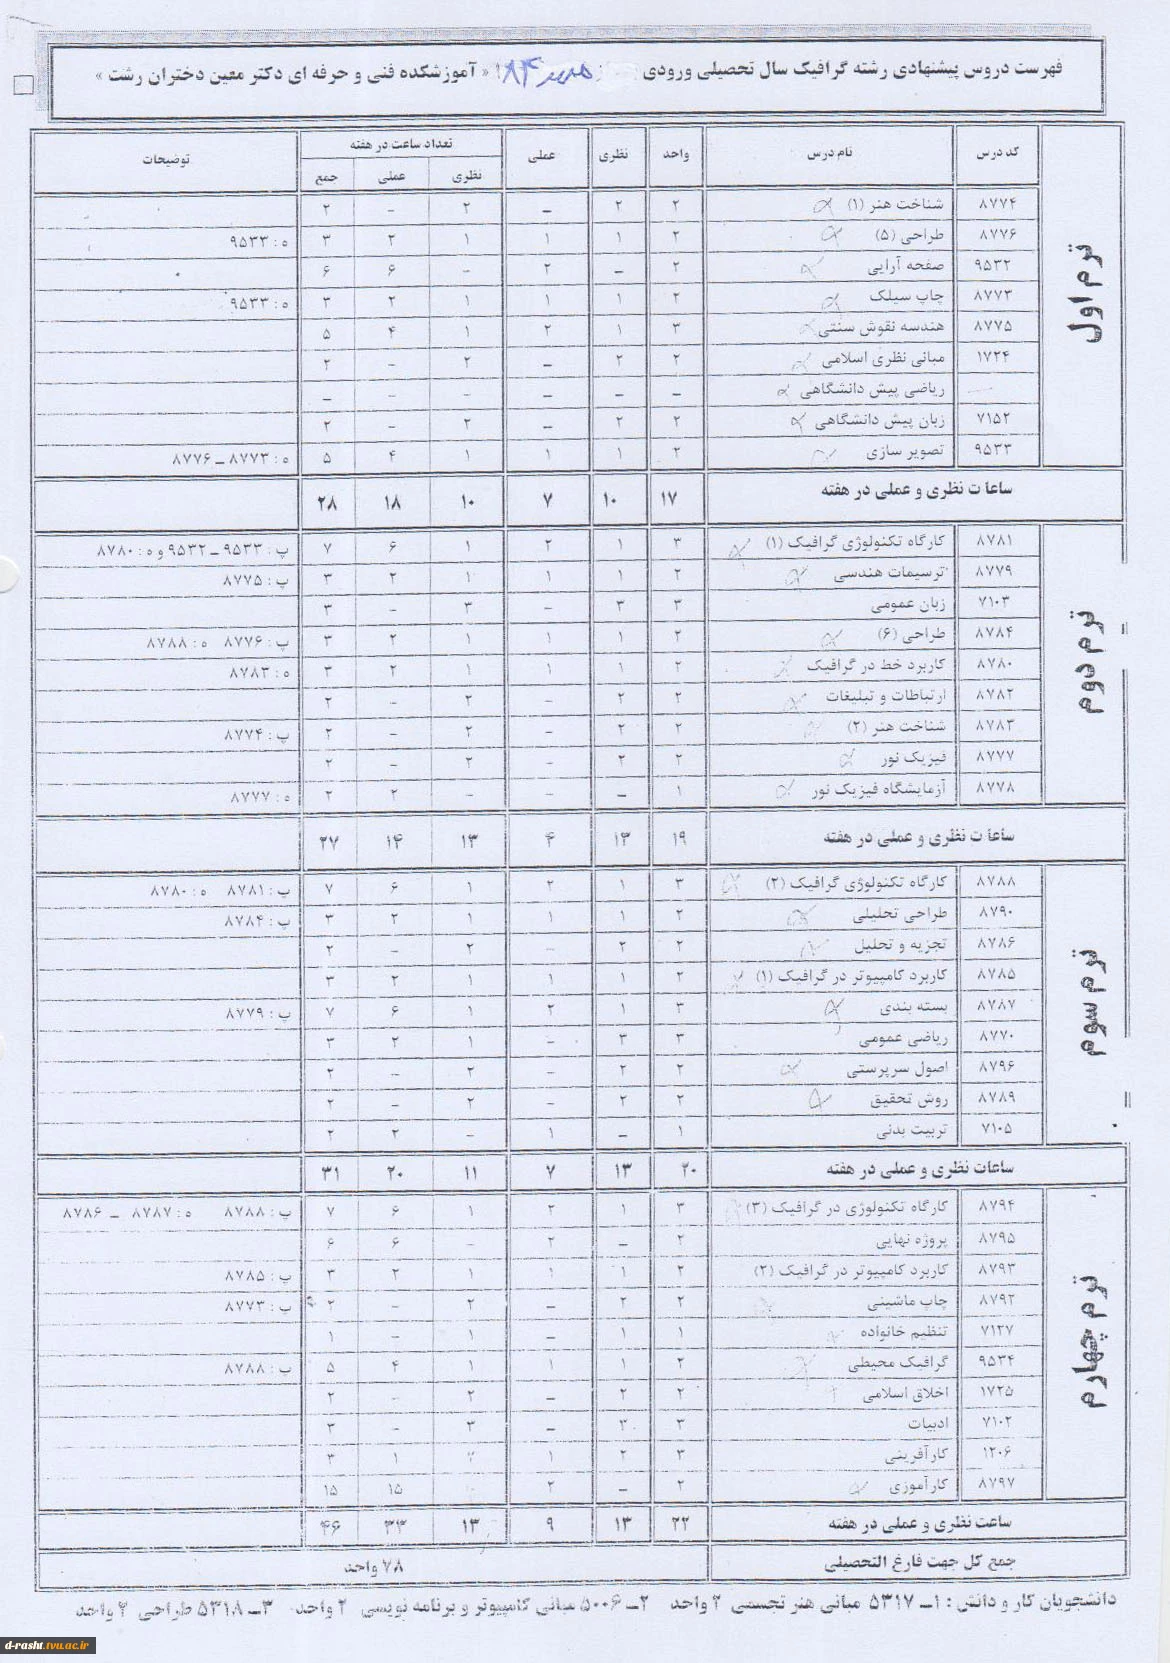 فهرست دروس پیشنهادی رشته گرافیک سال تحصیلی ورودی مهر ۸۴ « آموزشکده فنی و حرفه ای دکتر معین دختران رشت »
کد درس نام درس واحد نظری عملی تعداد ساعت در هفته توضیحات
نظری عملی جمع
ترم اول
۸۷۷۴ شناخت هنر (۱) ۲ ۲ – ۲ – ۲
۸۷۷۶ طراحی (۵) ۲ ۱ ۱ ۱ ۲ ۳ ه : ۹۵۳۳
۹۵۳۲ صفحه آرایی ۲ – ۲ – ۶ ۶
۸۷۷۳ چاپ سیلک ۲ ۱ ۱ ۱ ۲ ۳ ه : ۹۵۳۳
۸۷۷۵ هندسه نقوش سنتی ۳ ۱ ۲ ۱ ۴ ۵
۱۷۲۴ مبانی نظری اسلامی ۲ ۲ – ۲ – ۲
— ریاضی پیش دانشگاهی – – – – – –
۷۱۵۲ زبان پیش دانشگاهی ۲ ۲ – ۲ – ۲
۹۵۳۳ تصویر سازی ۲ ۱ ۱ ۱ ۴ ۵ ه : ۸۷۷۳ – ۸۷۷۶
ساعات نظری و عملی در هفته ۱۷ ۱۰ ۷ ۱۰ ۱۸ ۲۸
ترم دوم
۸۷۸۱ کارگاه تکنولوژی گرافیک (۱) ۳ ۱ ۲ ۱ ۶ ۷ پ : ۹۵۳۳ – ۹۵۳۲ و ه : ۸۷۸۰
۸۷۷۹ ترسیمات هندسی ۲ ۱ ۱ ۱ ۲ ۳ پ : ۸۷۷۵
۷۱۰۳ زبان عمومی ۳ ۳ – ۳ – ۳
۸۷۸۴ طراحی (۶) ۲ ۱ ۱ ۱ ۲ ۳ پ : ۸۷۷۶ ه : ۸۷۸۸
۸۷۸۰ کاربرد خط در گرافیک ۲ ۱ ۱ ۱ ۲ ۳ ه : ۸۷۸۳
۸۷۸۲ ارتباطات و تبلیغات ۲ ۲ – ۲ – ۲
۸۷۸۳ شناخت هنر (۲) ۲ ۲ – ۲ – ۲ پ : ۸۷۷۴
۸۷۷۷ فیزیک نور ۲ ۲ – ۲ – ۲
۸۷۷۸ آزمایشگاه فیزیک نور ۱ – – – ۲ ۲ ه : ۸۷۷۷
ساعات نظری و عملی در هفته ۱۹ ۱۳ ۴ ۱۳ ۱۴ ۲۷
ترم سوم
۸۷۸۸ کارگاه تکنولوژی گرافیک (۲) ۳ ۱ ۲ ۱ ۶ ۷ پ : ۸۷۸۱ ه : ۸۷۸۰
۸۷۹۰ طراحی تحلیلی ۲ ۱ ۱ ۱ ۲ ۳ پ : ۸۷۸۴
۸۷۸۶ تجزیه و تحلیل ۲ ۲ – ۲ – ۲
۸۷۸۵ کاربرد کامپیوتر در گرافیک (۱) ۲ ۱ ۱ ۱ ۲ ۳
۸۷۸۷ بسته بندی ۳ ۱ ۲ ۱ ۶ ۷ پ : ۸۷۷۹
۸۷۷۰ ریاضی عمومی ۳ ۳ – ۱ ۲ ۳
۸۷۹۶ اصول سرپرستی ۲ ۲ – ۲ – ۲
۸۷۸۹ روش تحقیق ۲ ۲ – ۲ – ۲
۷۱۰۵ تربیت بدنی ۱ – ۱ – ۲ ۲
ساعات نظری و عملی در هفته ۲۰ ۱۳ ۷ ۱۱ ۲۰ ۳۱
ترم چهارم
۸۷۹۴ کارگاه تکنولوژی در گرافیک (۳) ۳ ۱ ۲ ۱ ۶ ۷ پ : ۸۷۸۸ ه : ۸۷۸۷ – ۸۷۸۶
۸۷۹۵ پروژه نهایی ۲ – ۲ – ۶ ۶
۸۷۹۳ کاربرد کامپیوتر در گرافیک (۲) ۲ ۱ ۱ ۱ ۲ ۳ پ : ۸۷۸۵
۸۷۹۲ چاپ ماشینی ۲ ۲ – ۲ – ۲ پ : ۸۷۷۳
۷۱۲۷ تنظیم خانواده ۱ ۱ – ۱ – ۱
۹۵۳۴ گرافیک محیطی ۲ ۱ ۱ ۱ ۴ ۵ پ : ۸۷۸۸
۱۷۲۵ اخلاق اسلامی ۲ ۲ – ۲ ۲
۷۱۰۲ ادبیات ۳ ۳ – ۳ – ۳
۱۲۰۶ کارآفرینی ۳ ۲ ۱ ۲ ۱ ۳
۸۷۹۷ کارآموزی ۲ – ۲ ۱۵ ۱۵
ساعت نظری و عملی در هفته ۲۲ ۱۳ ۹ ۱۳ ۳۳ ۴۶
جمع کل جهت فارغ التحصیلی ۷۸ واحد
دانشجویان کار و دانش : ۱– ۵۳۱۷ مبانی هنر تجسمی ۲ واحد ۲– ۵۰۰۶ مبانی کامپیوتر و برنامه نویسی ۲ واحد ۳– ۵۳۱۸ طراحی ۲ واحد
d-rasht.tvu.ac.ir